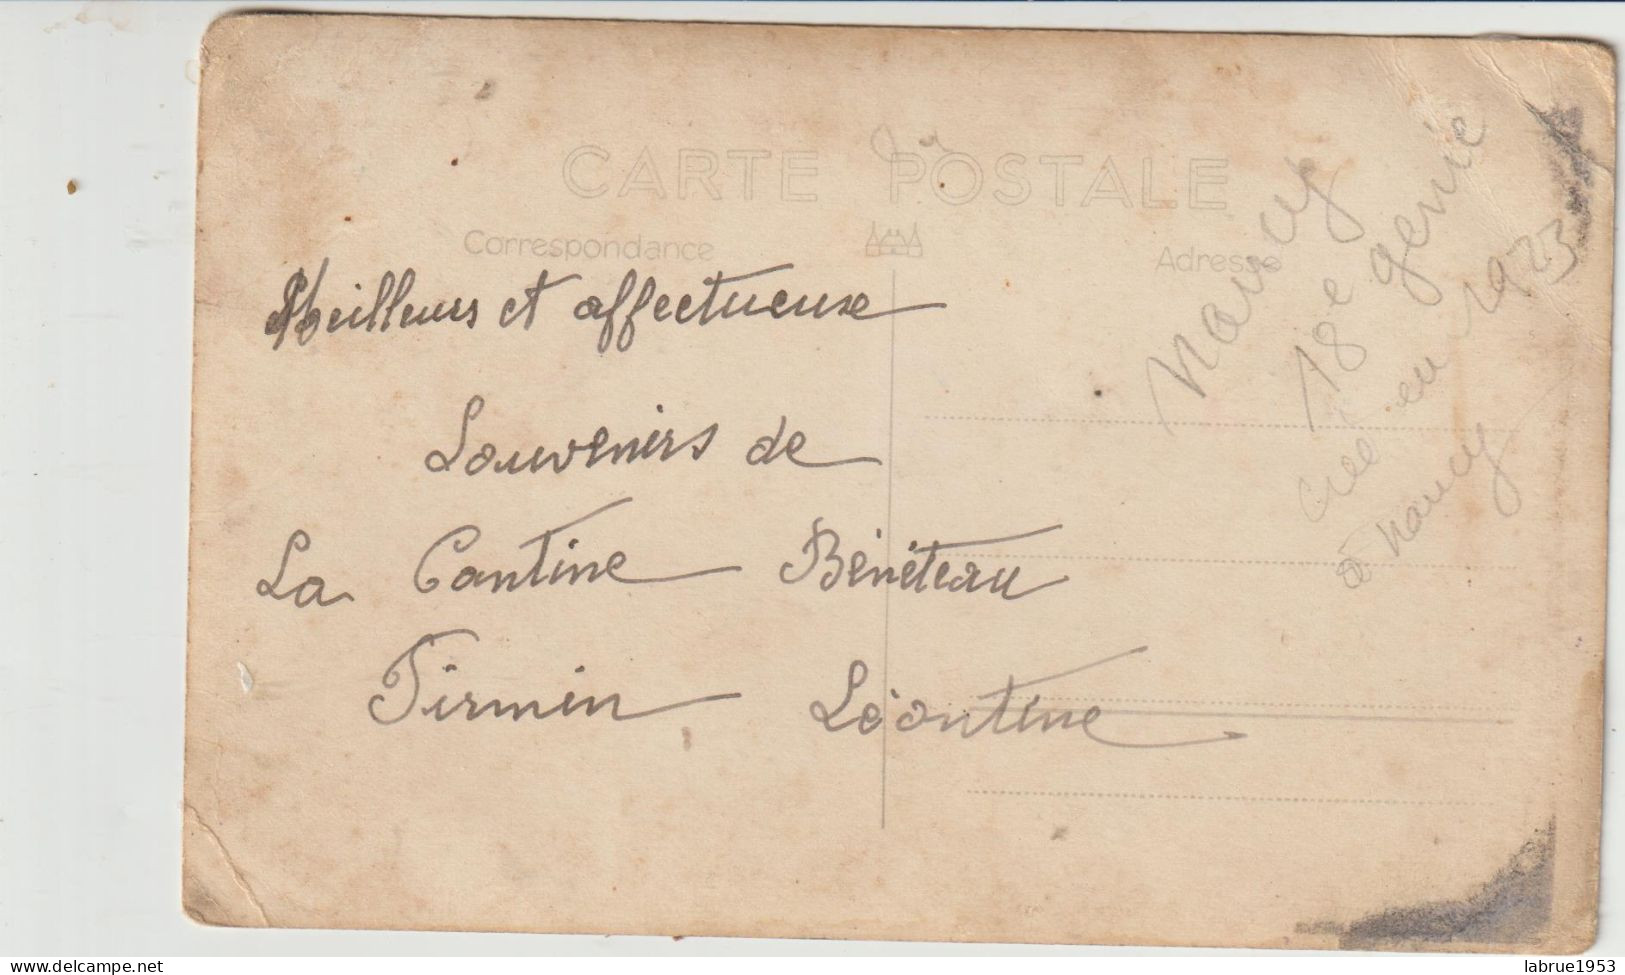 CARTE POSTALE
Correspondance
Adresse
Meilleurs et affectueuse
Souvenirs de
La Cantine Bénéteau
Firmin Léontine
Nancy
18e genie
créé en 1923
à Nancy
labrue1953